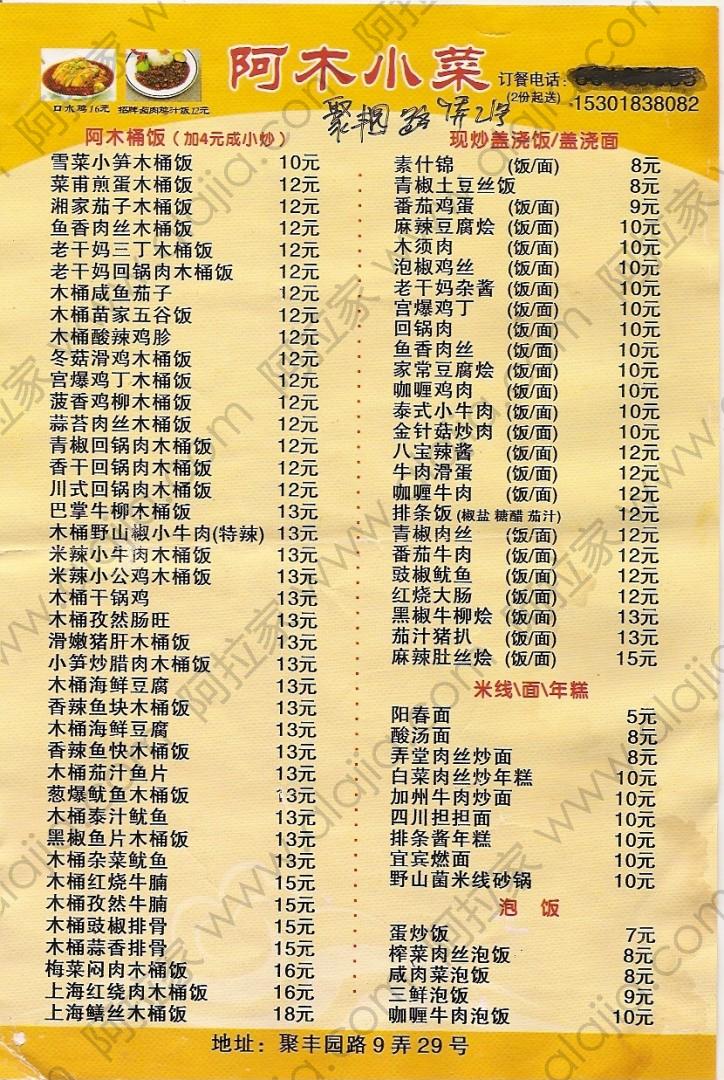 阿木小菜
口水鸡16元
招牌卤肉鸡汁饭12元
订餐电话:
(2份起送) 15301838082
聚丰园路9弄29号
阿木桶饭(加4元成小炒)
雪菜小笋木桶饭 10元
菜甫煎蛋木桶饭 12元
湘家茄子木桶饭 12元
鱼香肉丝木桶饭 12元
老干妈三丁木桶饭 12元
老干妈回锅肉木桶饭 12元
木桶咸鱼茄子 12元
木桶苗家五谷饭 12元
木桶酸辣鸡胗 12元
冬菇滑鸡木桶饭 12元
宫爆鸡丁木桶饭 12元
菠香鸡柳木桶饭 12元
蒜苔肉丝木桶饭 12元
青椒回锅肉木桶饭 12元
香干回锅肉木桶饭 12元
川式回锅肉木桶饭 12元
巴掌牛柳木桶饭 13元
木桶野山椒小牛肉(特辣) 13元
米辣小牛肉木桶饭 13元
米辣小公鸡木桶饭 13元
木桶干锅鸡 13元
木桶孜然肠旺 13元
滑嫩猪肝木桶饭 13元
小笋炒腊肉木桶饭 13元
木桶海鲜豆腐 13元
香辣鱼块木桶饭 13元
木桶海鲜豆腐 13元
香辣鱼快木桶饭 13元
木桶茄汁鱼片 13元
葱爆鱿鱼木桶饭 13元
木桶泰汁鱿鱼 13元
黑椒鱼片木桶饭 13元
木桶杂菜鱿鱼 13元
木桶红烧牛腩 15元
木桶孜然牛腩 15元
木桶豉椒排骨 15元
木桶蒜香排骨 15元
梅菜闷肉木桶饭 16元
上海红绕肉木桶饭 16元
上海鳝丝木桶饭 18元
现炒盖浇饭/盖浇面
素什锦 (饭/面) 8元
青椒土豆丝饭 8元
番茄鸡蛋 (饭/面) 9元
麻辣豆腐烩 (饭/面) 10元
木须肉 (饭/面) 10元
泡椒鸡丝 (饭/面) 10元
老干妈杂酱 (饭/面) 10元
宫爆鸡丁 (饭/面) 10元
回锅肉 (饭/面) 10元
鱼香肉丝 (饭/面) 10元
家常豆腐烩 (饭/面) 10元
咖喱鸡肉 (饭/面) 10元
泰式小牛肉 (饭/面) 10元
金针菇炒肉 (饭/面) 10元
八宝辣酱 (饭/面) 12元
牛肉滑蛋 (饭/面) 12元
咖喱牛肉 (饭/面) 12元
排条饭(椒盐 糖醋 茄汁) 12元
青椒肉丝 (饭/面) 12元
番茄牛肉 (饭/面) 12元
豉椒鱿鱼 (饭/面) 12元
红烧大肠 (饭/面) 12元
黑椒牛柳烩 (饭/面) 13元
茄汁猪扒 (饭/面) 13元
麻辣肚丝烩 (饭/面) 15元
米线\面\年糕
阳春面 5元
酸汤面 8元
弄堂肉丝炒面 8元
白菜肉丝炒年糕 10元
加州牛肉炒面 10元
四川担担面 10元
排条酱年糕 10元
宜宾燃面 10元
野山菌米线砂锅 10元
泡饭
蛋炒饭 7元
榨菜肉丝泡饭 8元
咸肉菜泡饭 8元
三鲜泡饭 9元
咖喱牛肉泡饭 10元
地址：聚丰园路9弄29号
阿拉家 www.alajia.com